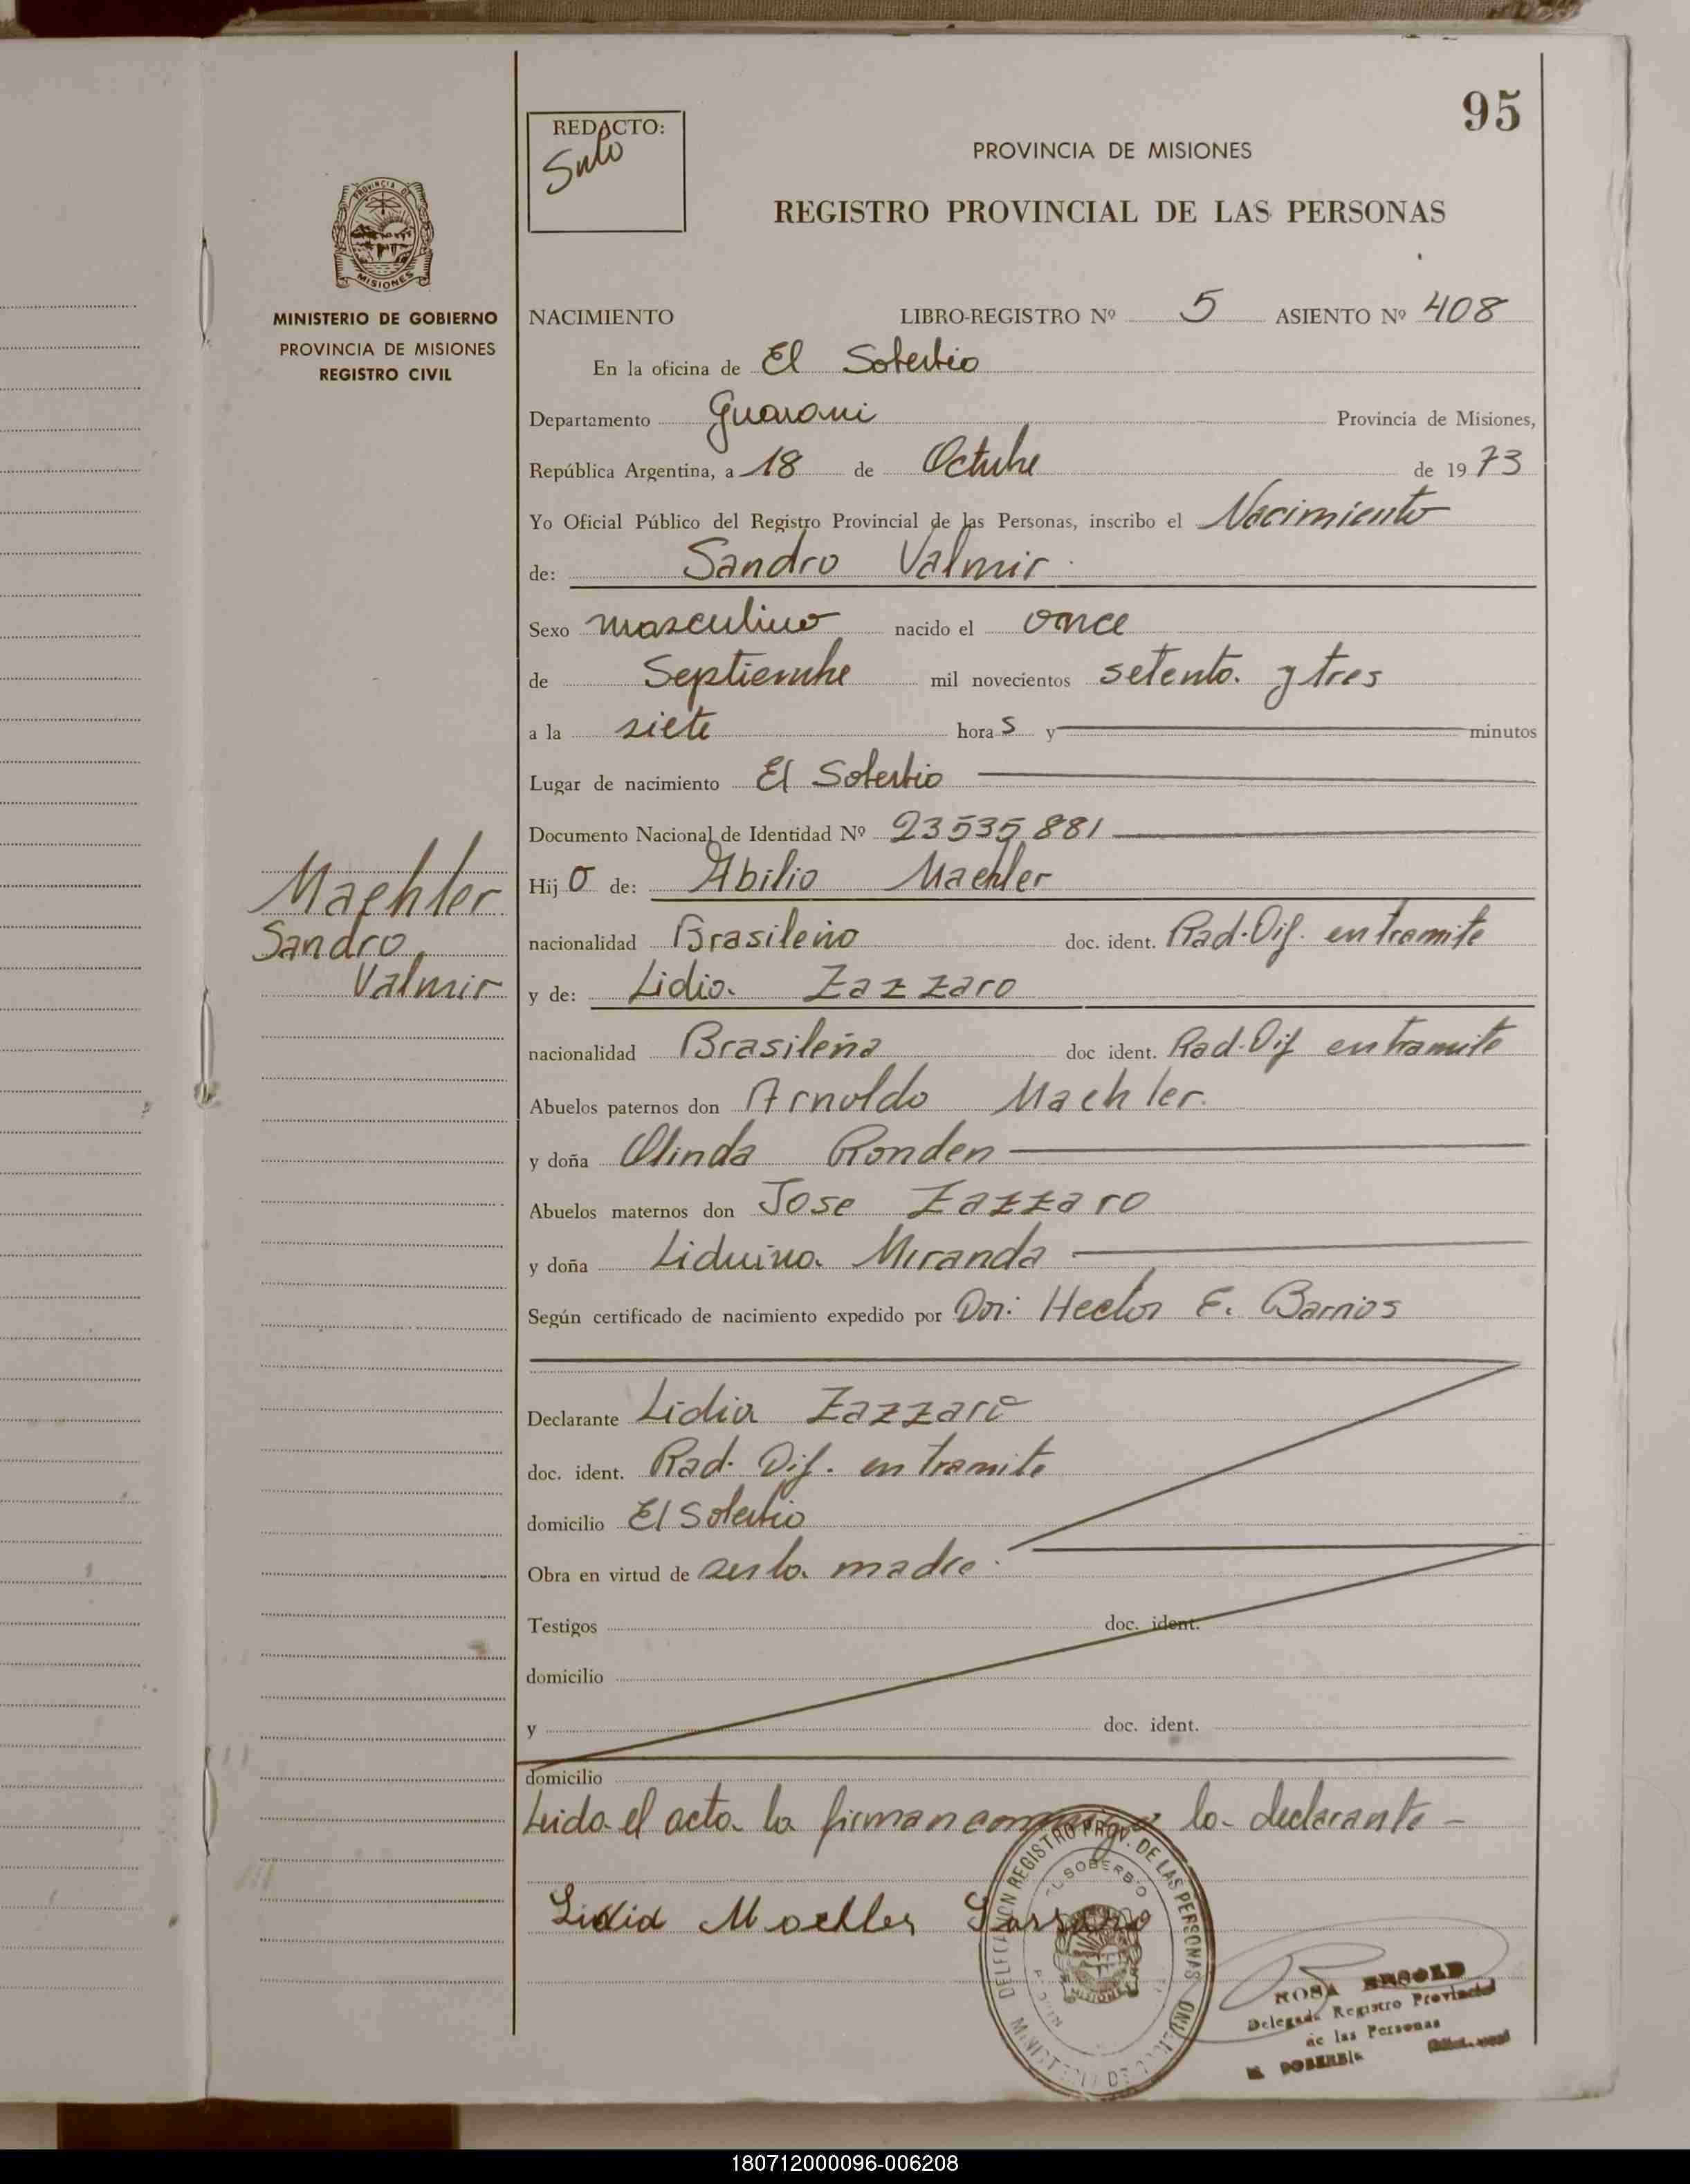 95
REDACTO:
PROVINCIA DE MISIONES
REGISTRO PROVINCIAL DE LAS PERSONAS
PROVINCIA DE
MISIONES
MINISTERIO DE GOBIERNO
PROVINCIA DE MISIONES
REGISTRO CIVIL
NACIMIENTO LIBRO-REGISTRO Nº 5 ASIENTO Nº 408
En la oficina de El Soberbio
Departamento Guarani Provincia de Misiones,
República Argentina, a 18 de Octubre de 1973
Yo Oficial Público del Registro Provincial de las Personas, inscribo el Nacimiento
de: Sandro Valmir
Sexo masculino nacido el once
de Septiembre mil novecientos setenta y tres
a la siete horas y minutos
Lugar de nacimiento El Soberbio
Documento Nacional de Identidad Nº 23535881
Maehler
Sandro
Valmir
Hijo de: Abilio Maehler
nacionalidad Brasileño doc. ident. Rad. Dif. en tramite
y de: Lidia Zazzaro
nacionalidad Brasileña doc ident. Rad. Dif en tramite
Abuelos paternos don Arnoldo Maehler
y doña Olinda Ronden
Abuelos maternos don Jose Zazzaro
y doña Liduina Miranda
Según certificado de nacimiento expedido por Dor: Hector E. Barrios
Declarante Lidia Zazzaro
doc. ident. Rad. Dif. en tramite
domicilio El Soberbio
Obra en virtud de ser la madre
Testigos doc. ident.
domicilio
y doc. ident.
domicilio
Leida el acta la firman conmigo la declarante -
Lidia Maehler
DELEGACION REGISTRO PROV. DE LAS PERSONAS
EL SOBERBIO
MISIONES
ROSA
Delegada Registro Provincial
de las Personas
EL SOBERBIO
180712000096-006208